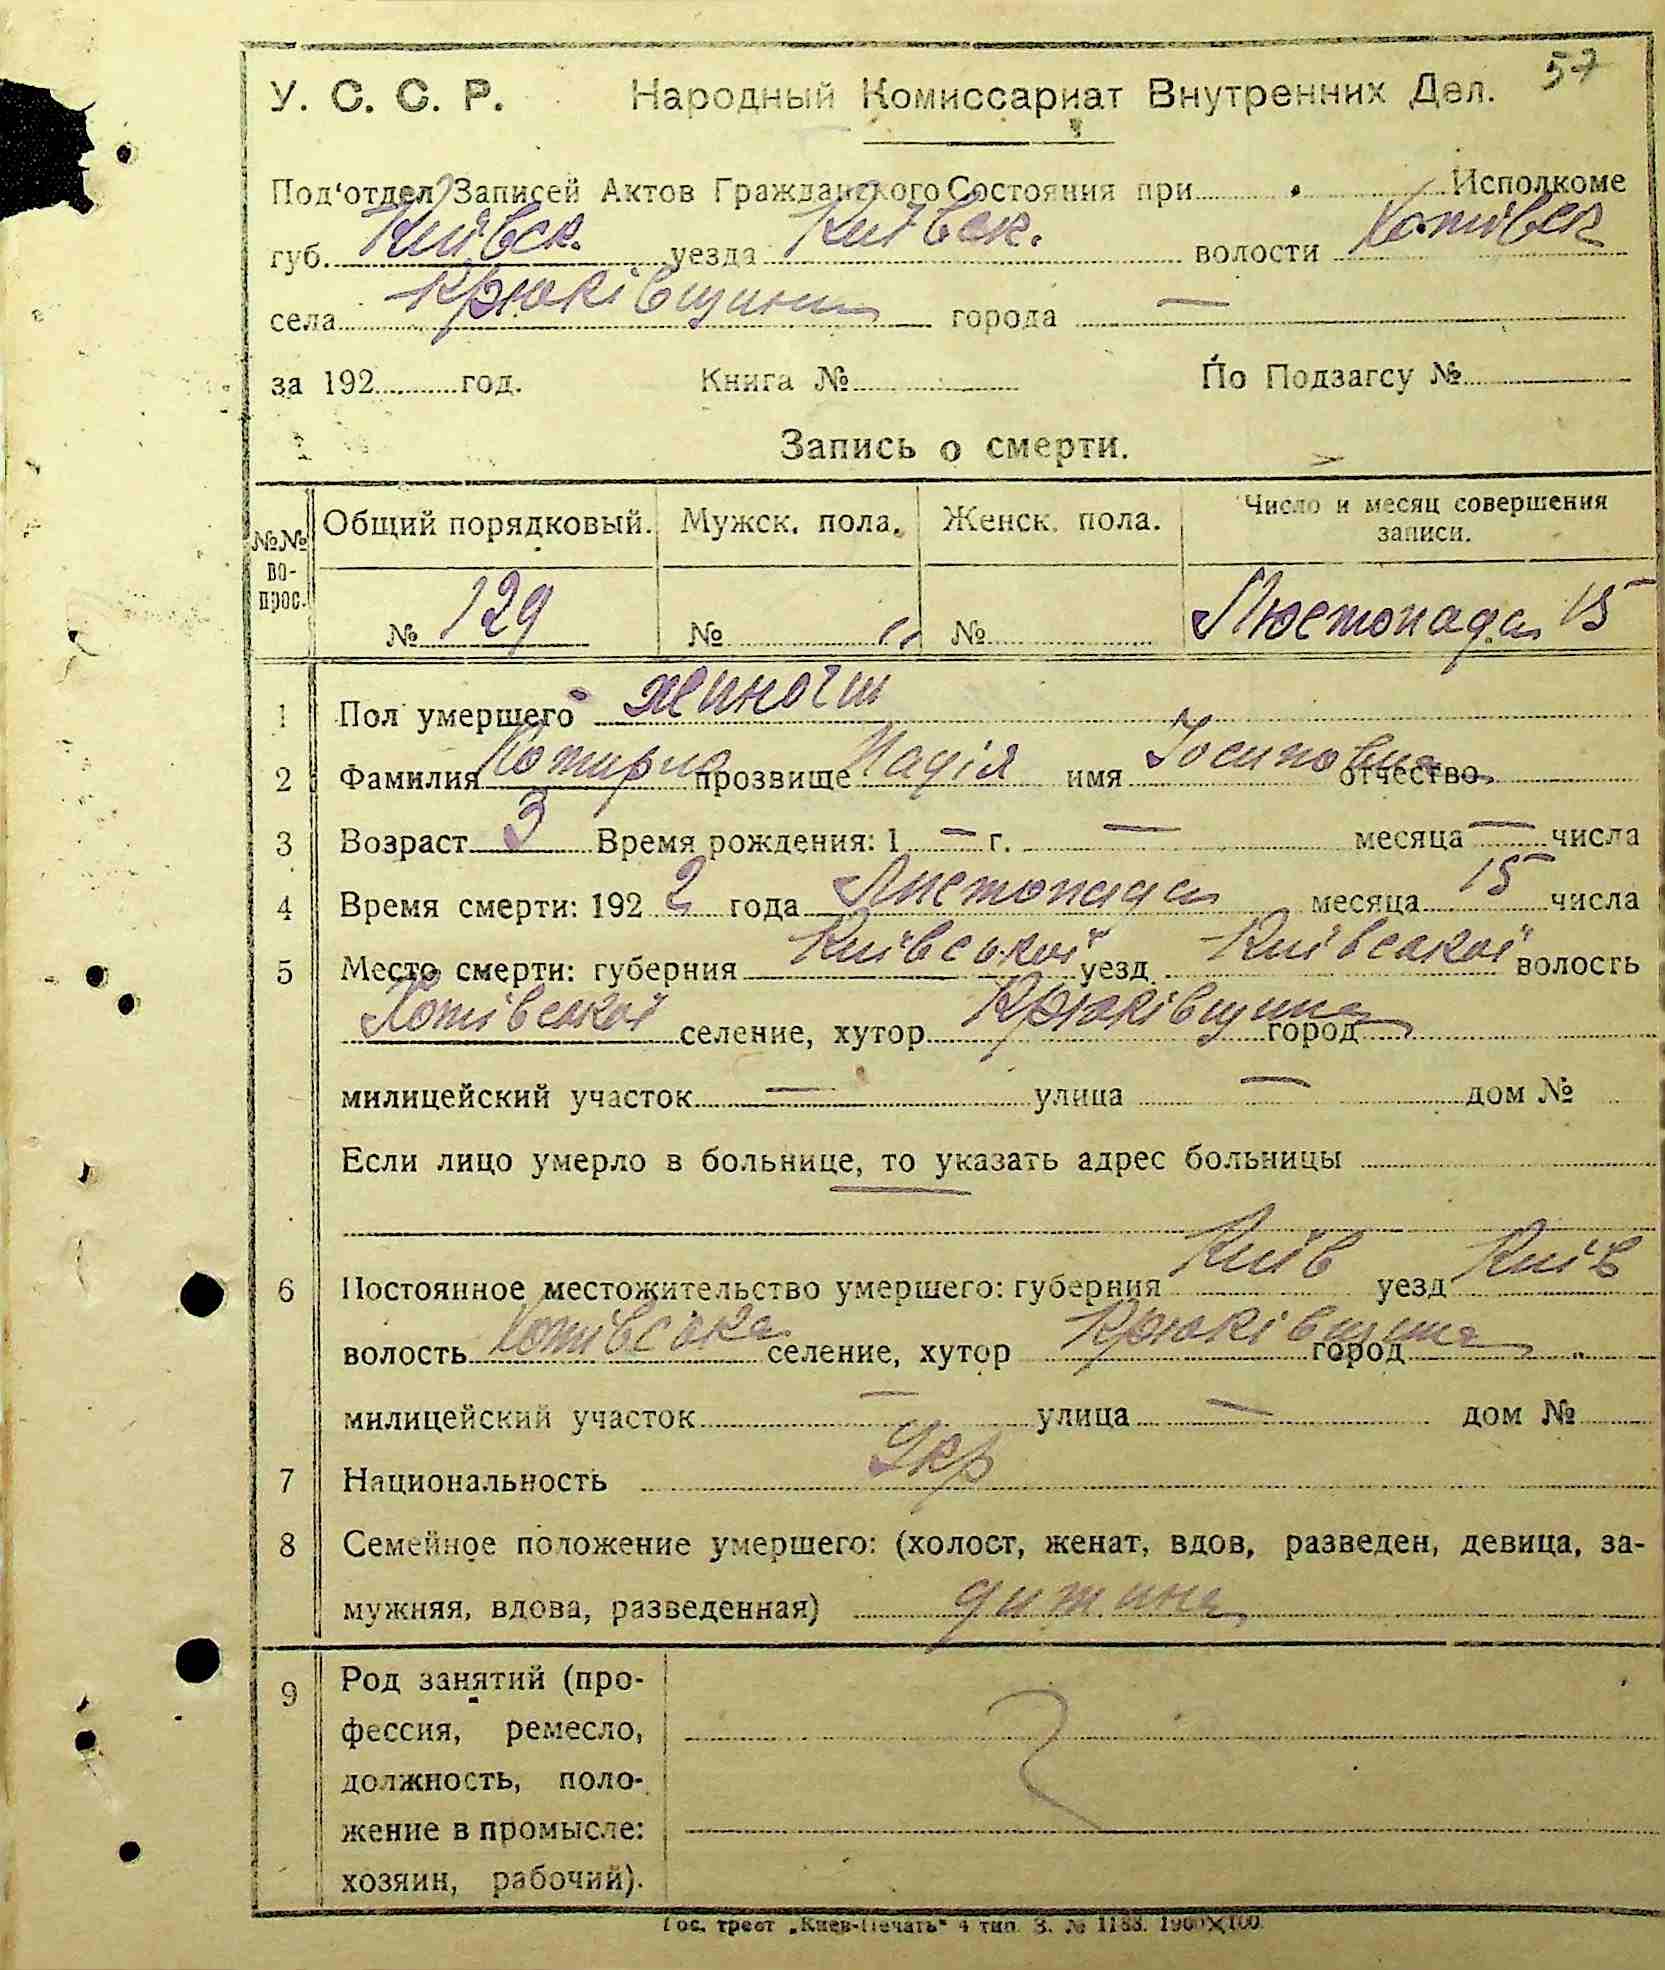 57
У. С. С. Р. Народный Комиссариат Внутренних Дел.
Под'отдел Записей Актов Гражданского Состояния при Исполкоме
губ. Київск. уезда Київск. волости Хотівск
села Крюківщини города —
за 192 год. Книга № По Подзагсу №
Запись о смерти.
№№ во-прос. Общий порядковый. Мужск. пола. Женск. пола. Число и месяц совершения записи.
№ 129 № № Листопада 15
1 Пол умершего жиночш
2 Фамилия прозвище Надія имя Іосиповна отчество
3 Возраст 3 Время рождения: 1 — г. — месяца — числа
4 Время смерти: 192 2 года Листопада месяца 15 числа
5 Место смерти: губерния Київської уезд Київської волость
Хотівської селение, хутор Крюківщина город
милицейский участок — улица — дом №
Если лицо умерло в больнице, то указать адрес больницы
—
6 Постоянное местожительство умершего: губерния Київ уезд Київ
волость Хотівська селение, хутор Крюківщина город
милицейский участок — улица — дом №
7 Национальность Укр
8 Семейное положение умершего: (холост, женат, вдов, разведен, девица, за-
мужняя, вдова, разведенная) дитина
9 Род занятий (про-
фессия, ремесло,
должность, поло-
жение в промысле:
хозяин, рабочий).
Гос. трест „Киев-Печать" 4 тип. З. № 1188. 1900×100.